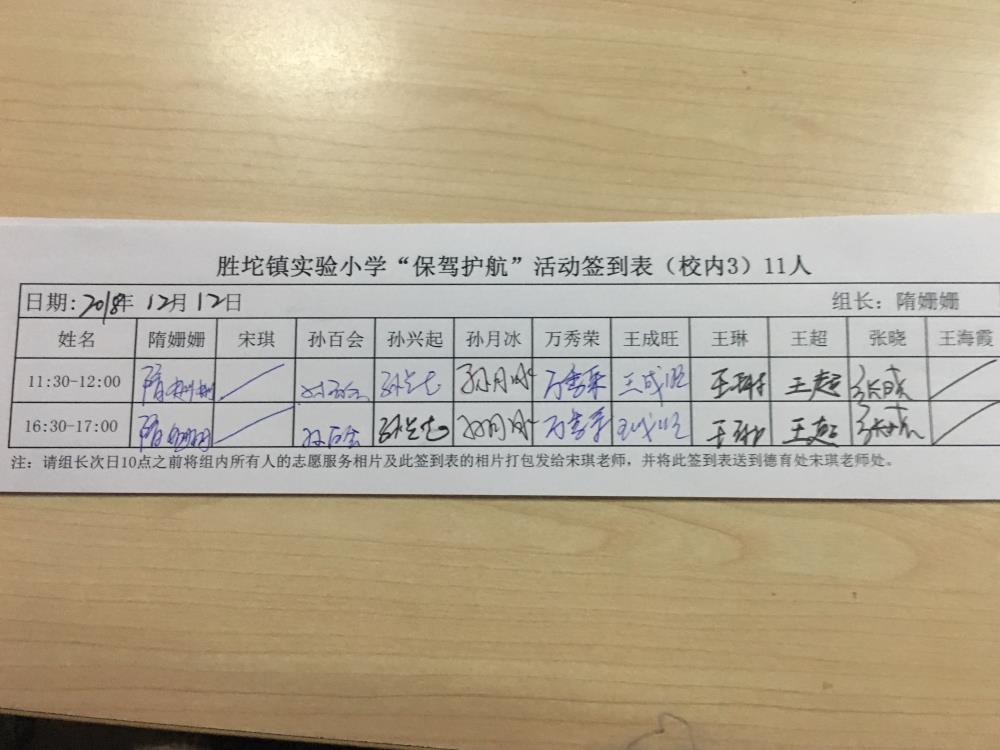 胜坨镇实验小学“保驾护航”活动签到表（校内3）11人
日期:2018年 12月 12日 组长: 隋姗姗
姓名 隋姗姗 宋琪 孙百会 孙兴起 孙月冰 万秀荣 王成旺 王琳 王超 张晓 王海霞
11:30-12:00 隋姗姗 孙百会 孙兴起 孙月冰 万秀荣 王成旺 王琳 王超 张晓
16:30-17:00 隋姗姗 孙百会 孙兴起 孙月冰 万秀荣 王成旺 王琳 王超 张晓
注: 请组长次日10点之前将组内所有人的志愿服务相片及此签到表的相片打包发给宋琪老师，并将此签到表送到德育处宋琪老师处。